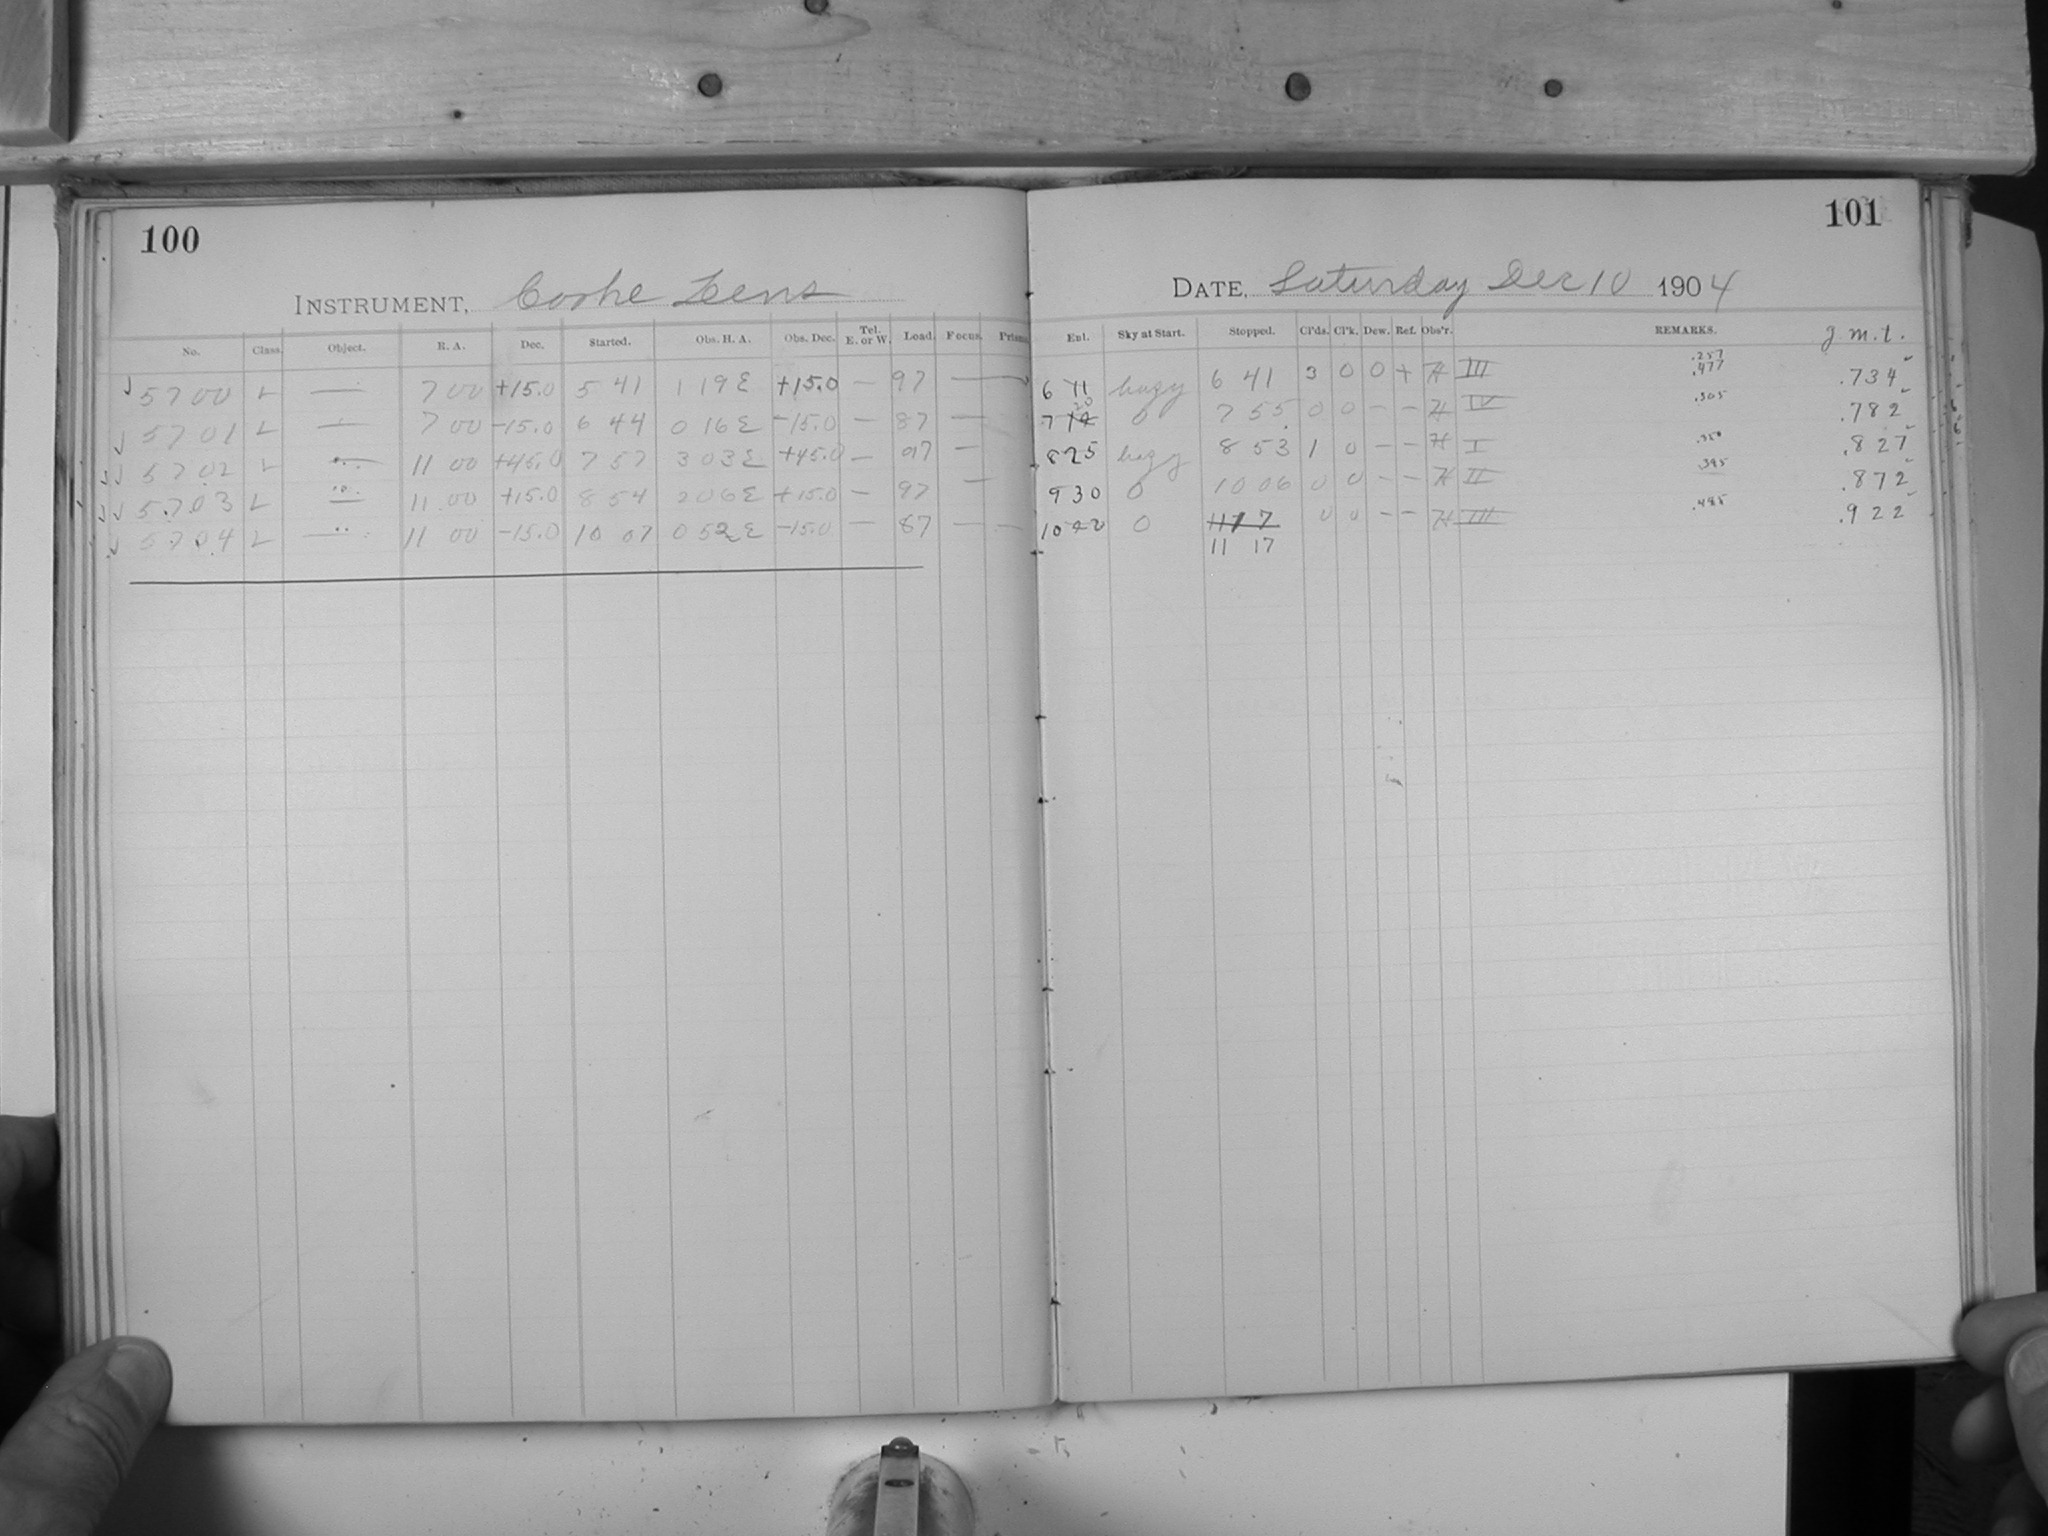 100
INSTRUMENT, Cooke Lens
No. Class. Object. R. A. Dec. Started. Obs. H. A. Obs. Dec. Tel. E. or W. Load. Focus. Prism
5700 L — 7 00 +15.0 5 41 1 19 E +15.0 — 97 —
5701 L — 7 00 -15.0 6 44 0 16 E -15.0 — 87 —
5702 L — 11 00 +45.0 7 57 3 03 E +45.0 — 97 —
5703 L — 11 00 +15.0 8 54 2 06 E +15.0 — 97 —
5704 L — 11 00 -15.0 10 07 0 52 E -15.0 — 87 — —
101
DATE, Saturday Dec 10 1904
Enl. Sky at Start. Stopped. Cl'ds. Cl'k. Dew. Ref. Obs'r. REMARKS. J. M. T.
.257
6 11 hazy 6 41 3 0 0 + H III .477 .734
20
7 14 0 7 55 0 0 - - H IV .305 .782
8 25 hazy 8 53 1 0 - - H I .350 .827
9 30 0 10 06 0 0 - - H II .395 .872
10 42 0 11 7 0 0 - - H III .485 .922
11 17